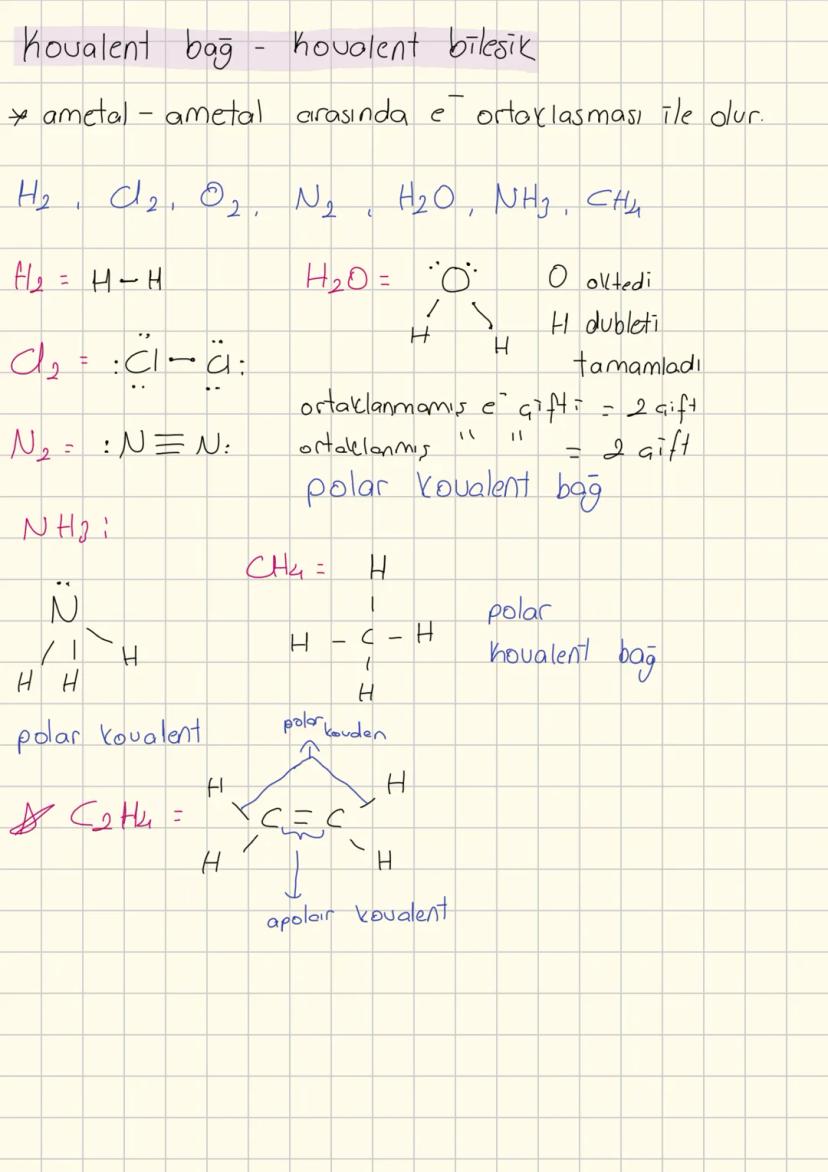 kovalent bağ - kovalent bileşik
* ametal - ametal arasında e⁻ ortaklasması ile olur.
H₂, Cl₂, O₂, N₂, H₂O, NH₃, CH₄
H₂ = H-H
Cl₂ = :Cl-Cl:
N₂ = :N≡N:
H₂O = O
H H
O oktedi
H dubleti
tamamladı
ortaklanmamış e⁻ çifti = 2 çift
ortaklanmış " " = 2 çift
polar kovalent bağ
NH₃:
N
H H H
polar kovalent
CH₄ = H
H - C - H
H
polar
kovalent bağ
polar kovden
C₂H₄ = H H
C = C
H H
apolar kovalent